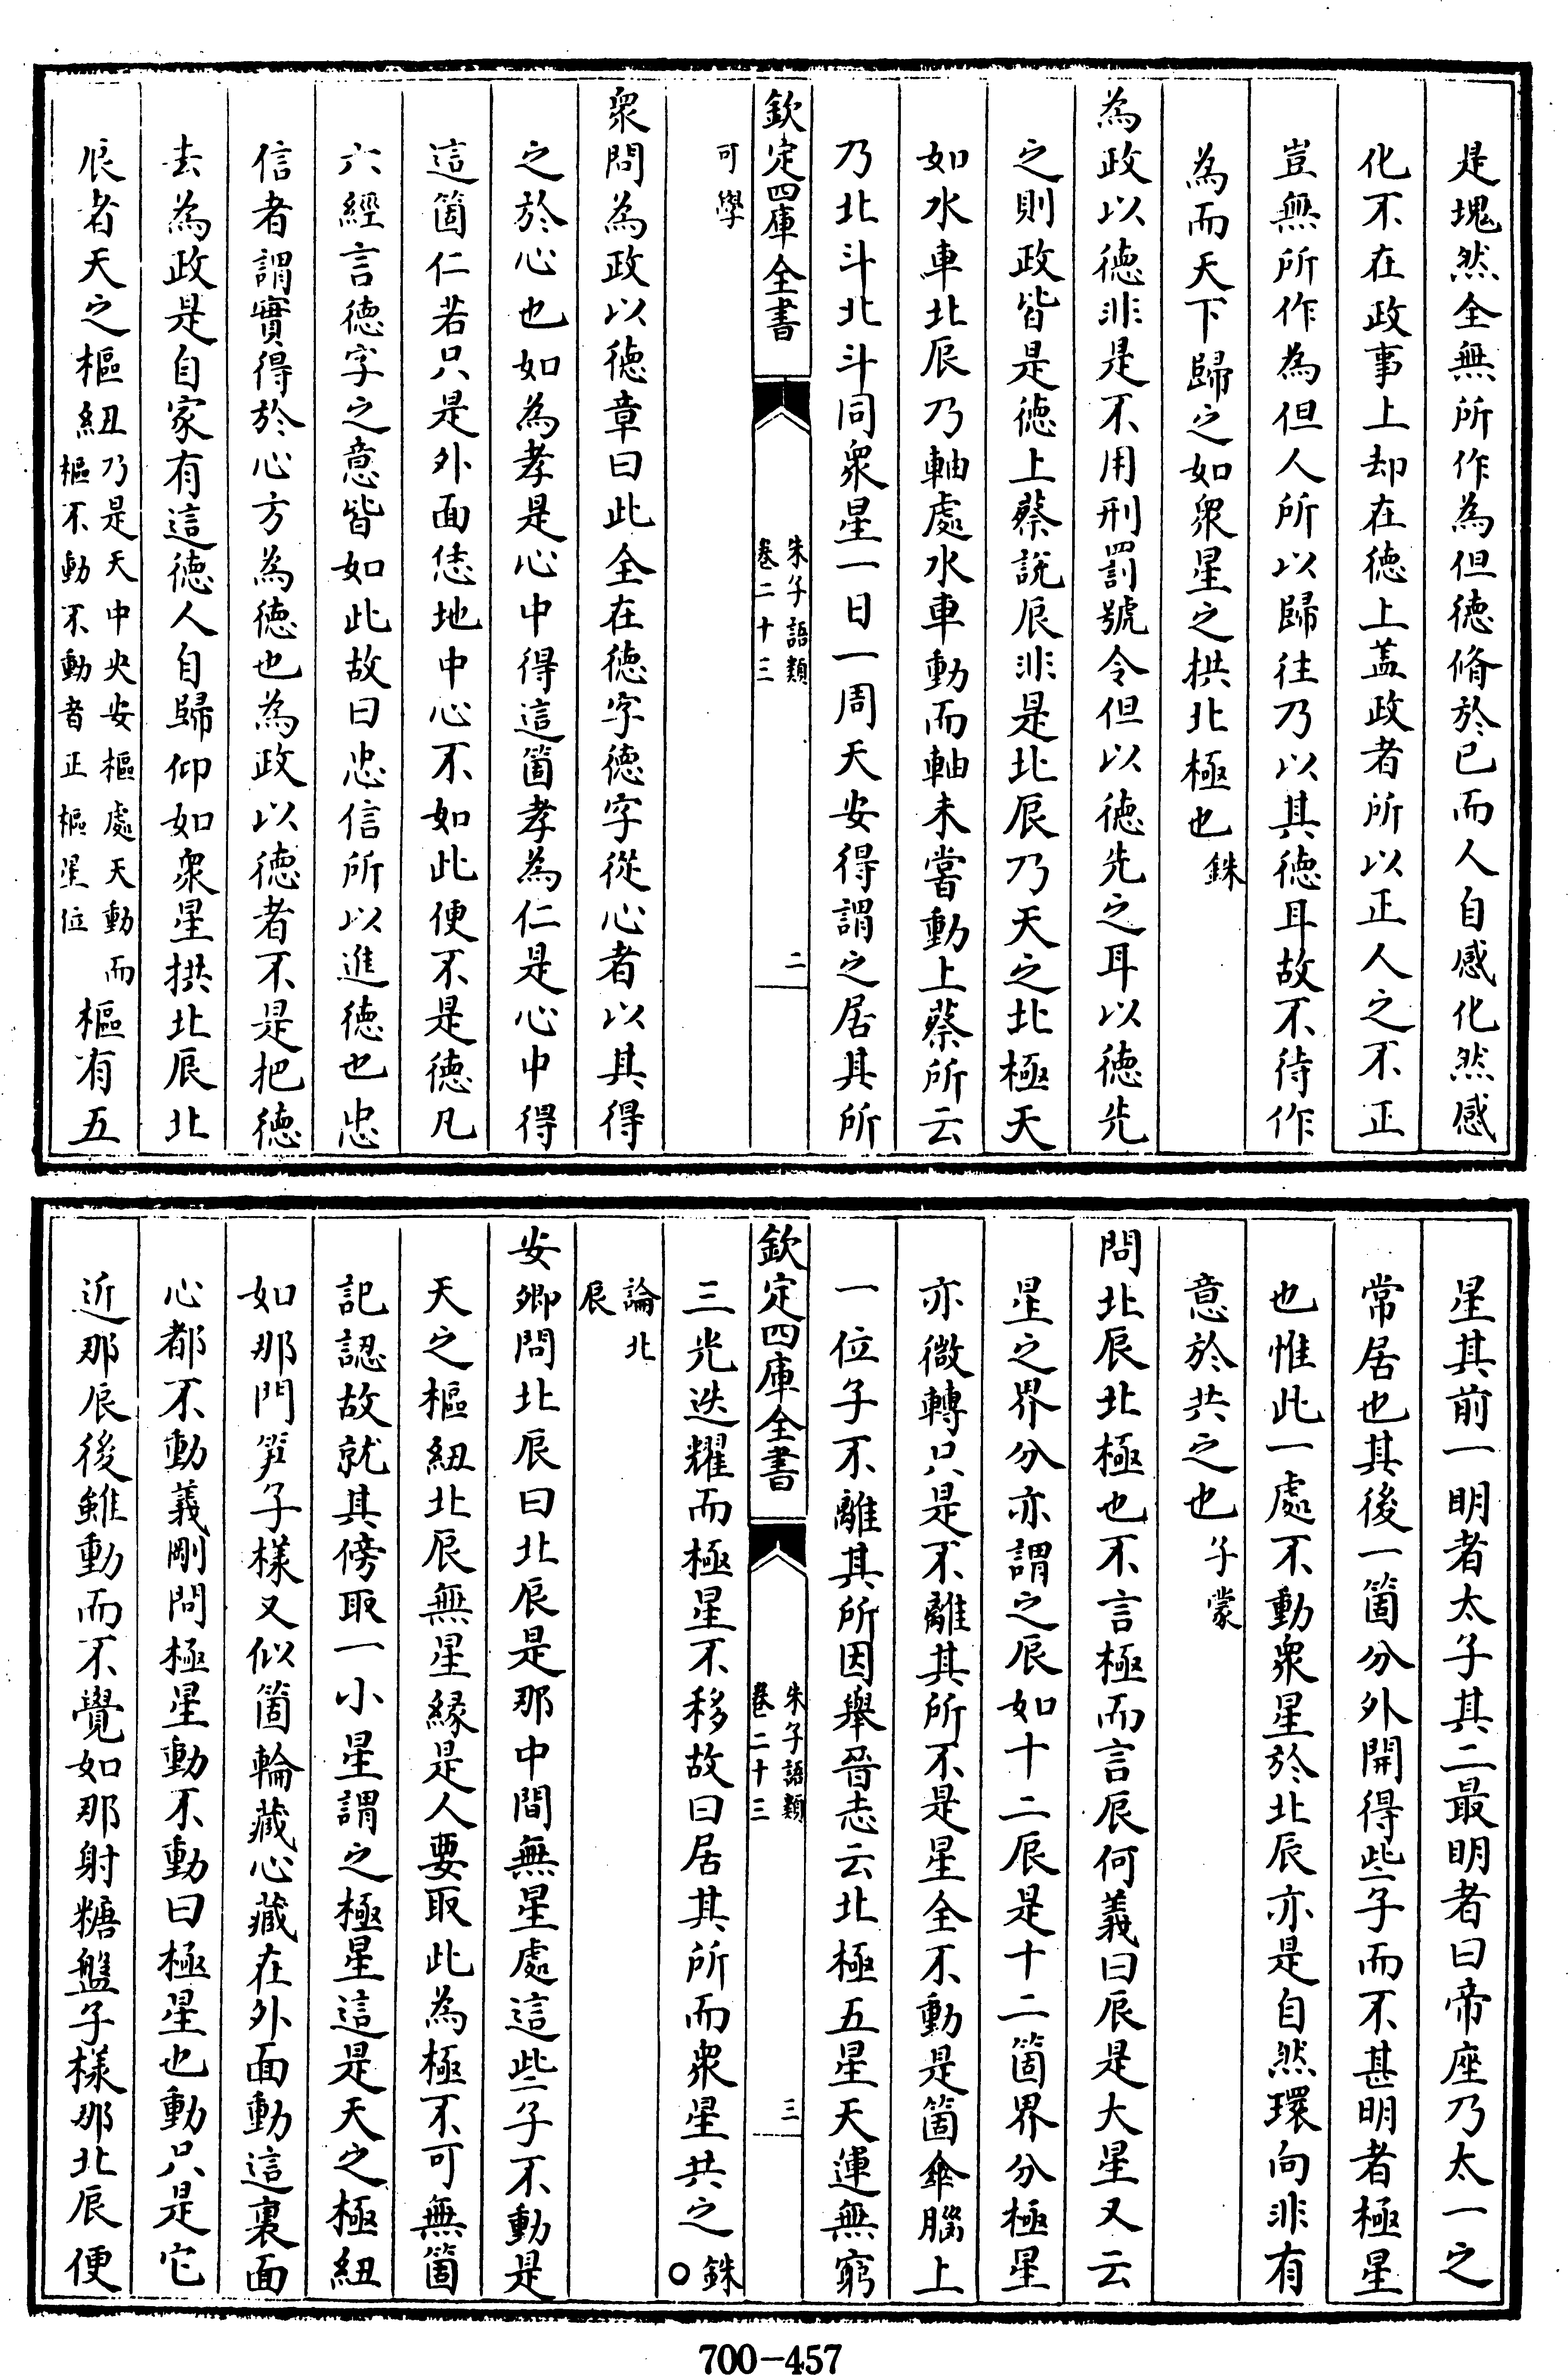 是塊然全無所作為但徳脩於已而人自感化然感
化不在政事上却在徳上蓋政者所以正人之不正
豈無所作為但人所以歸往乃以其徳耳故不待作
為而天下歸之如衆星之拱北極也銖
為政以徳非是不用刑罰號令但以徳先之耳以徳先
之則政皆是徳上蔡説辰非是北辰乃天之北極天
如水車北辰乃軸處水車動而軸未嘗動上蔡所云
乃北斗北斗同衆星一日一周天安得謂之居其所
欽定四庫全書
朱子語類
卷二十三
二
可學
衆問為政以徳章曰此全在徳字徳字從心者以其得
之於心也如為孝是心中得這箇孝為仁是心中得
這箇仁若只是外面恁地中心不如此便不是徳凡
六經言徳字之意皆如此故曰忠信所以進徳也忠
信者謂實得於心方為徳也為政以徳者不是把徳
去為政是自家有這徳人自歸仰如衆星拱北辰北
辰者天之樞紐乃是天中央安樞處天動而樞不動不動者正樞星位樞有五
星其前一明者太子其二最明者曰帝座乃太一之
常居也其後一箇分外開得些子而不甚明者極星
也惟此一處不動衆星於北辰亦是自然環向非有
意於共之也子蒙
問北辰北極也不言極而言辰何義曰辰是大星又云
星之界分亦謂之辰如十二辰是十二箇界分極星
亦微轉只是不離其所不是星全不動是箇傘腦上
一位子不離其所因舉晉志云北極五星天運無窮
欽定四庫全書
朱子語類
卷二十三
三
三光迭耀而極星不移故曰居其所而衆星共之銖○
論北辰
安卿問北辰曰北辰是那中間無星處這些子不動是
天之樞紐北辰無星縁是人要取此為極不可無箇
記認故就其傍取一小星謂之極星這是天之極紐
如那門笋子樣又似箇輪藏心藏在外面動這裏面
心都不動義剛問極星動不動曰極星也動只是它
近那辰後雖動而不覺如那射糖盤子樣那北辰便
700-457